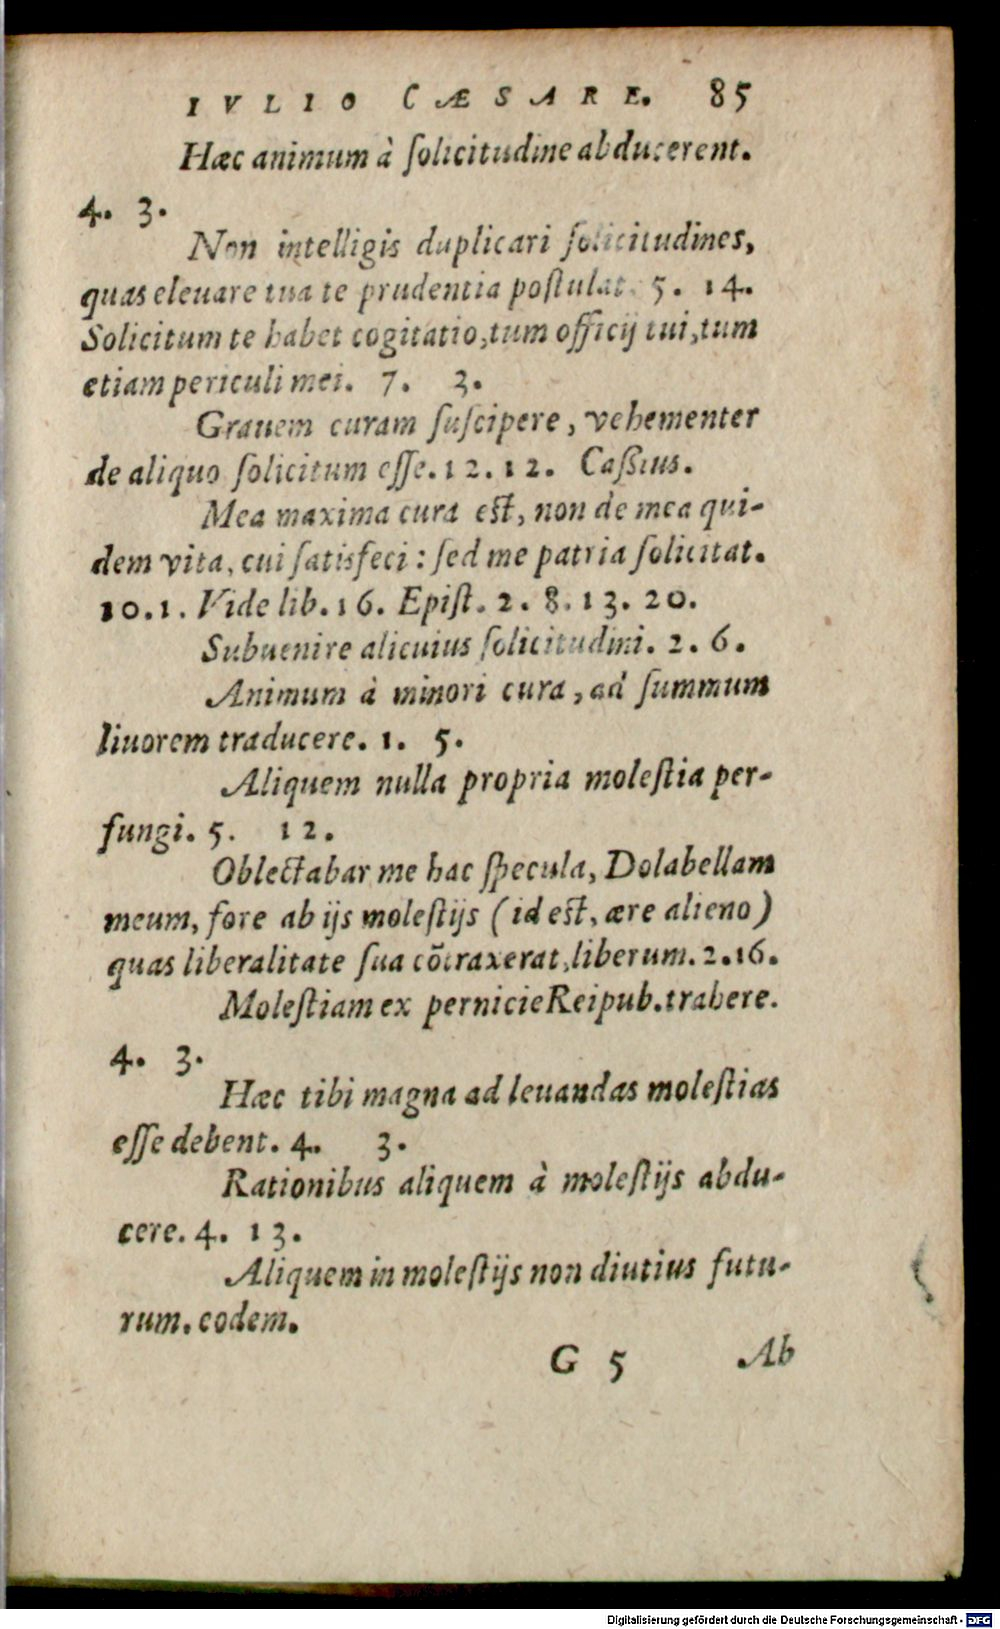 IVLIO CÆSARE. 85
Hæc animum à ſolicitudine abducerent.
4. 3.
Non intelligis duplicari ſolicitudines,
quas eleuare tua te prudentia poſtulat. 5. 14.
Solicitum te habet cogitatio, tum officij tui, tum
etiam periculi mei. 7. 3.
Grauem curam ſuſcipere, vehementer
de aliquo ſolicitum eſſe. 12. 12. Caſsius.
Mea maxima cura eſt, non de mea qui-
dem vita, cui ſatisfeci: ſed me patria ſolicitat.
10. 1. Vide lib. 16. Epiſt. 2. 8. 13. 20.
Subuenire alicuius ſolicitudini. 2. 6.
Animum à minori cura, ad ſummum
liuorem traducere. 1. 5.
Aliquem nulla propria moleſtia per-
fungi. 5. 12.
Oblectabar me hac ſpecula, Dolabellam
meum, fore ab ijs moleſtijs (id eſt, ære alieno)
quas liberalitate ſua cōtraxerat, liberum. 2. 16.
Moleſtiam ex pernicie Reipub. trahere.
4. 3.
Hæc tibi magna ad leuandas moleſtias
eſſe debent. 4. 3.
Rationibus aliquem à moleſtijs abdu-
cere. 4. 13.
Aliquem in moleſtijs non diutius futu-
rum. eodem.
G 5 Ab
Digitalisierung gefördert durch die Deutsche Forschungsgemeinschaft - DFG